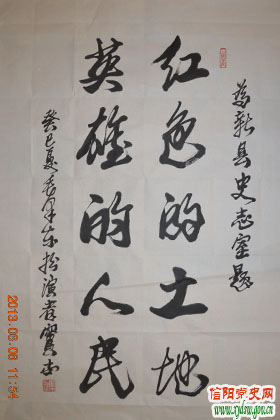 为新县史志室题
红色的土地
英雄的人民
癸巳夏
2013.06.08 11:54
信阳党史网
www.xydsw.gov.cn